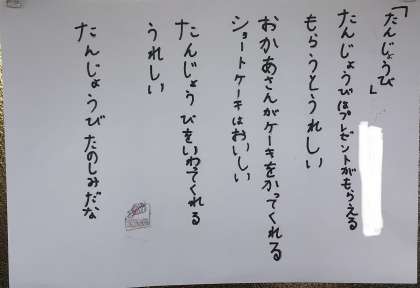 「たんじょうび」
たんじょうびはプレゼントがもらえる
もらうとうれしい
おかあさんがケーキをかってくれる
ショートケーキはおいしい
たんじょうびをいわってくれる
うれしい
たんじょうびたのしみだな